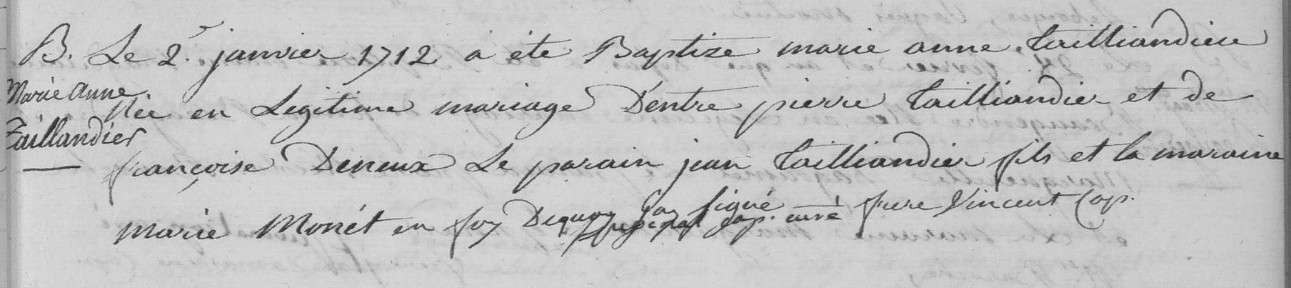 B. Le 2.r janvier 1712 a été Baptize marie anne Tailliandiere
Marie Anne
Née en Legitime mariage D'entre pierre Tailliandier et de
Taillandier
françoise Deneux Le parain jean Tailliandier fils et la maraine
marie Monét en foy Dequoy j'ay signé frere Vincent Cap.
cap. curé